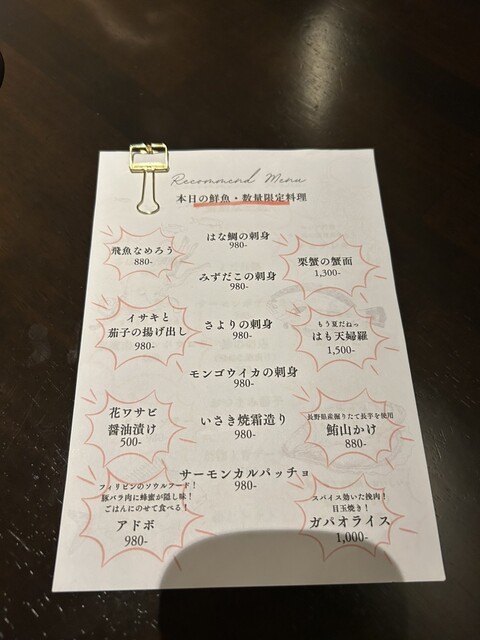 Recommend Menu
本日の鮮魚・数量限定料理
飛魚なめろう
880-
はな鯛の刺身
980-
栗蟹の蟹面
1,300-
みずだこの刺身
980-
イサキと
茄子の揚げ出し
980-
さよりの刺身
980-
もう夏だねっ
はも天婦羅
1,500-
モンゴウイカの刺身
980-
花ワサビ
醤油漬け
500-
いさき焼霜造り
980-
長野県産掘りたて長芋を使用
鮪山かけ
880-
サーモンカルパッチョ
980-
フィリピンのソウルフード!
豚バラ肉に蜂蜜が隠し味!
ごはんにのせて食べる!
アドボ
980-
スパイス効いた挽肉!
目玉焼き!
ガパオライス
1,000-